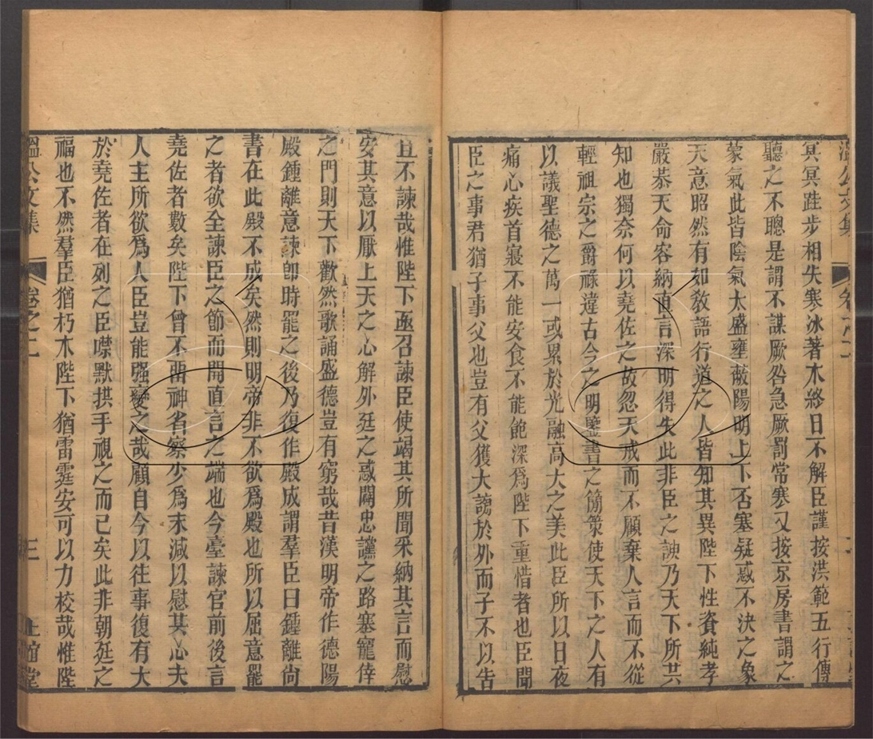 溫公文集
卷之二
冥冥跬步相失寒冰著木終日不解臣謹按洪範五行傳
聽之不聰是謂不謀厥咎急厥罰常寒又按京房書謂之
蒙氣此皆陰氣太盛壅蔽陽明上下否塞疑惑不決之象
天意昭然有如敎語行道之人皆知其異陛下性資純孝
嚴恭天命容納直言深明得失此非臣之諛乃天下所共
知也獨奈何以堯佐之故忽天戒而不顧棄人言而不從
輕祖宗之爵祿違古今之明鑒書之簡策使天下之人有
以議聖德之萬一或累於光融高大之美此臣所以日夜
痛心疾首寢不能安食不能飽深爲陛下重惜者也臣聞
臣之事君猶子事父也豈有父獲大謗於外而子不以告
且不諫哉惟陛下亟召諫臣使竭其所聞采納其言而慰
安其意以厭上天之心解外廷之惑闢忠讜之路塞寵倖
之門則天下歡然歌誦盛德豈有窮哉昔漢明帝作德陽
殿鍾離意諫卽時罷之後乃復作殿成謂羣臣曰鍾離尙
書在此殿不成矣然則明帝非不欲爲殿也所以屈意罷
之者欲全諫臣之節而開直言之端也今臺諫官前後言
堯佐者數矣陛下曾不留神省察少爲末減以慰其心夫
人主所欲爲人臣豈能强變之哉顧自今以往事復有大
於堯佐者在列之臣噤默拱手視之而已矣此非朝廷之
福也不然羣臣猶朽木陛下猶雷霆安可以力校哉惟陛
溫公文集
卷之二
三
正誼堂